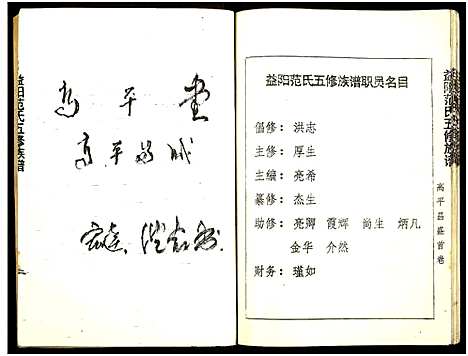 益阳范氏五修族谱职员名目
倡修：洪志
主修：厚生
主编：亮希
纂修：杰生
助修：亮卿 霞辉 尚生 炳凡
金华 介然
财务：瑾如
益阳范氏五修族谱
高平昌盛首卷
高平堂
高平昌盛
益阳范氏五修族谱